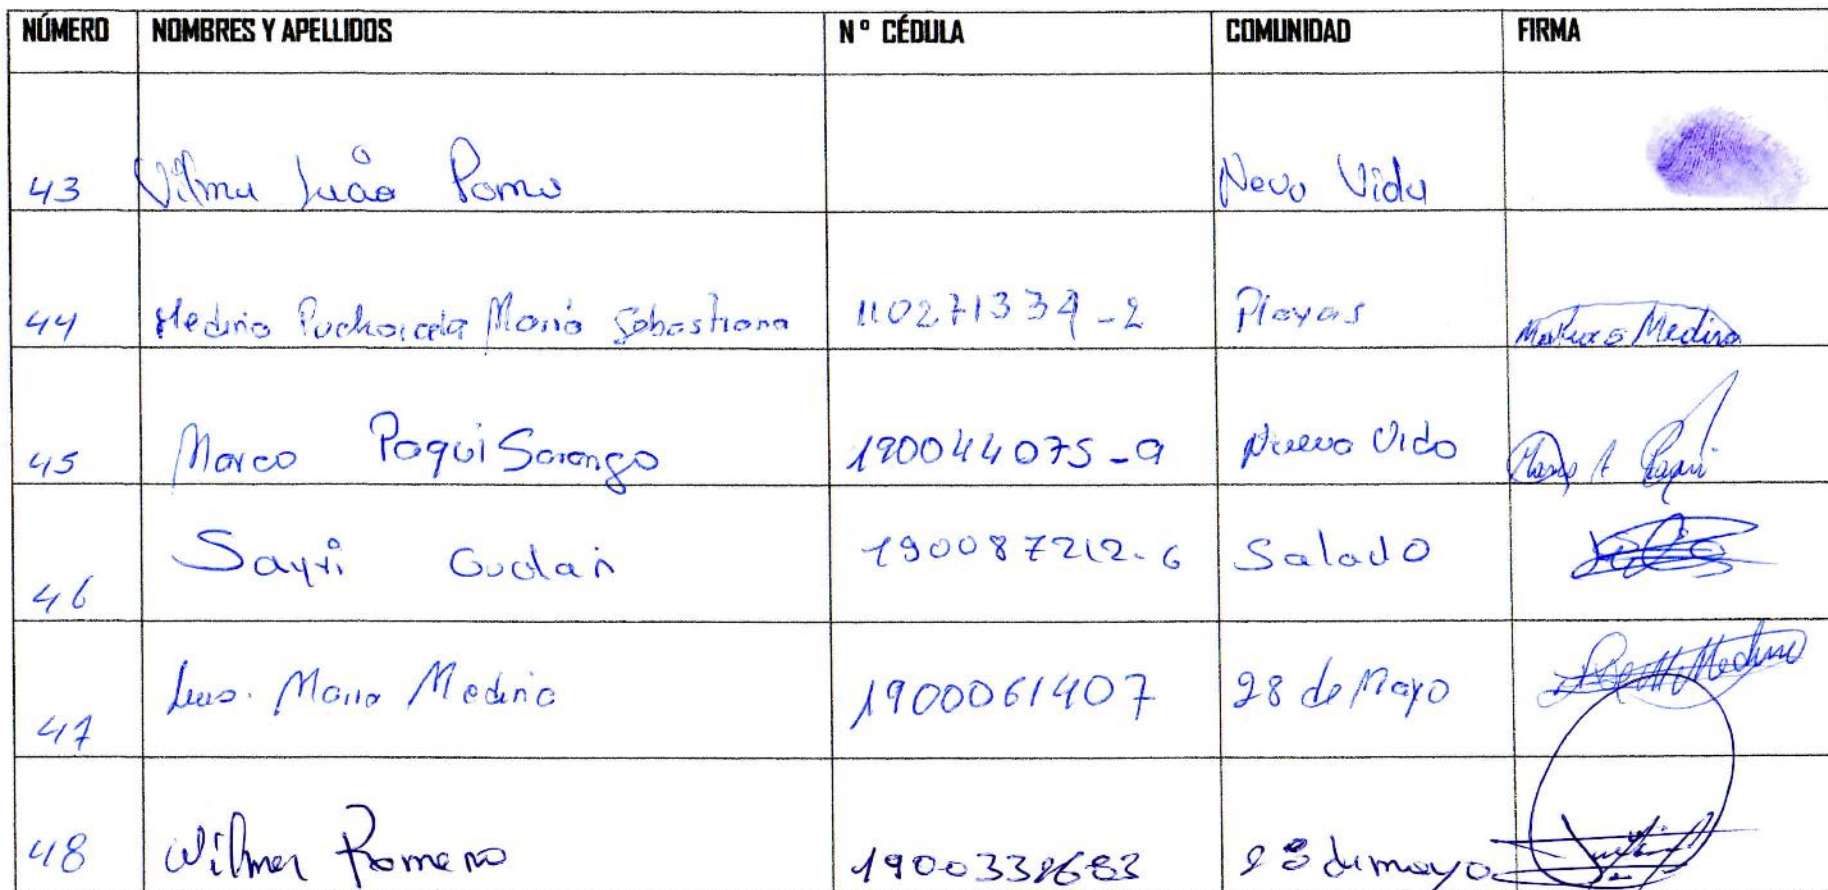 NÚMERO NOMBRES Y APELLIDOS N° CÉDULA COMUNIDAD FIRMA
43 Vilma Poma Nevo Vida
44 Medina María Sebastiana Playas Medina
45 Marco Paqui Sarango 190044075-9 Nueva Vida Paqui
46 Sayri 190087212-6 Salado
47 Luis. María Medina 1900061407 28 de Mayo Medina
48 Wilmer Romero 28 de mayo